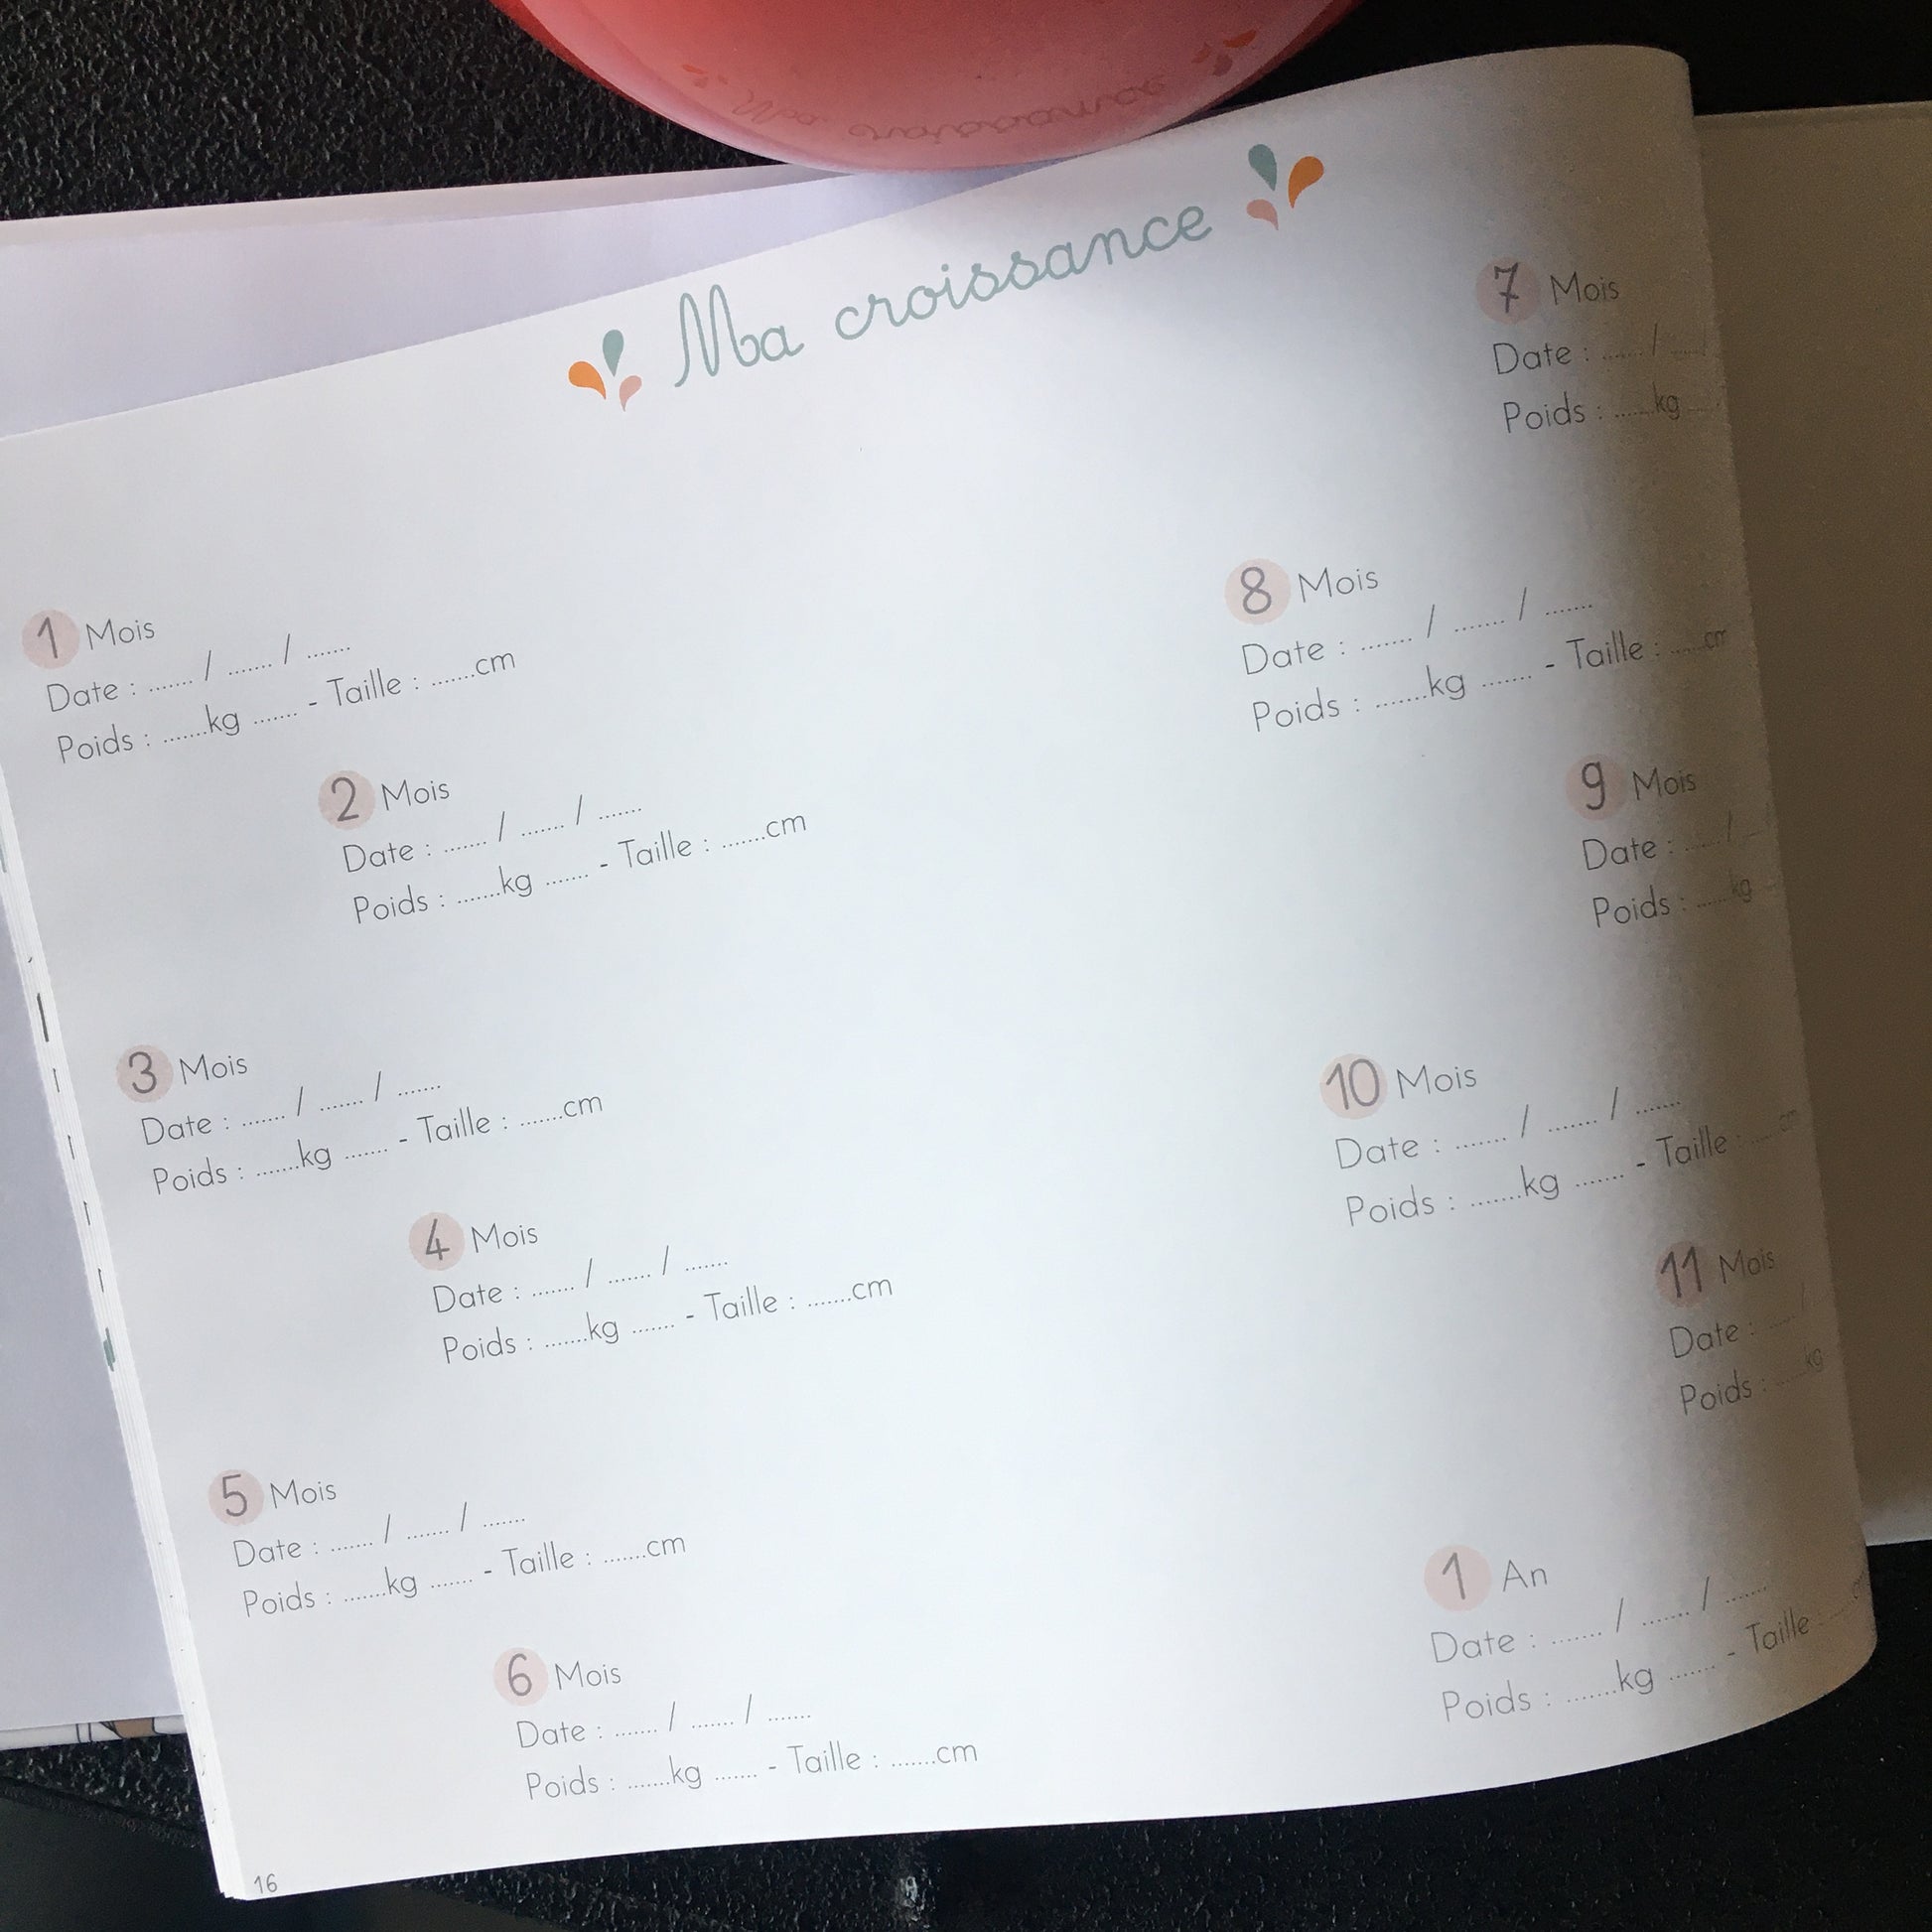 Ma croissance
1 Mois
Date : ....... / ....... / .......
Poids : .......kg ....... - Taille : .......cm
2 Mois
Date : ....... / ....... / .......
Poids : .......kg ....... - Taille : .......cm
3 Mois
Date : ....... / ....... / .......
Poids : .......kg ....... - Taille : .......cm
4 Mois
Date : ....... / ....... / .......
Poids : .......kg ....... - Taille : .......cm
5 Mois
Date : ....... / ....... / .......
Poids : .......kg ....... - Taille : .......cm
6 Mois
Date : ....... / ....... / .......
Poids : .......kg ....... - Taille : .......cm
7 Mois
Date : ....... / .......
Poids : .......kg .......
8 Mois
Date : ....... / ....... / .......
Poids : .......kg ....... - Taille : .......cm
9 Mois
Date : ....... /
Poids : .......kg
10 Mois
Date : ....... / ....... / .......
Poids : .......kg ....... - Taille : .......cm
11 Mois
Date : ....... /
Poids : .......kg
1 An
Date : ....... / ....... / .......
Poids : .......kg ....... - Taille : .......cm
16